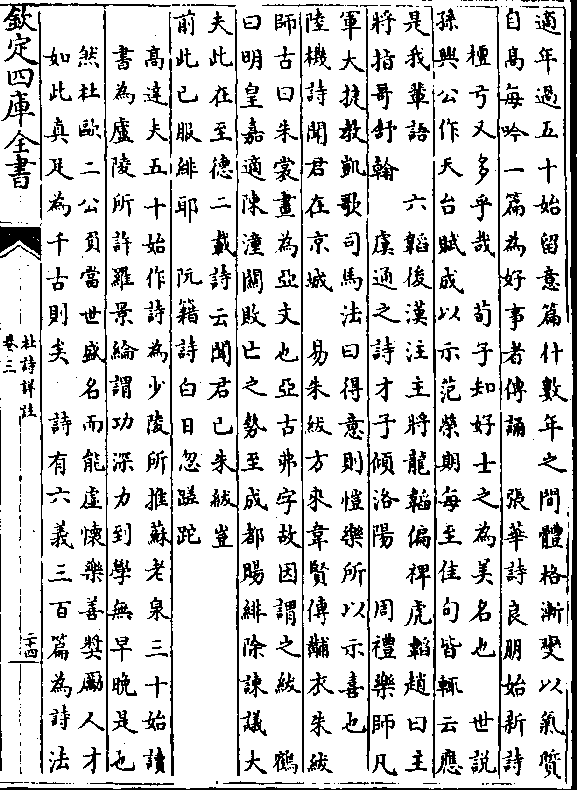 適年過五十始留意篇什數年之間體格漸變以氣質
自高每吟一篇為好事者傳誦　張華詩良朋始新詩
檀弓又多乎哉　荀子知好士之為美名也　世說
孫興公作天台賦成以示范榮期每至佳句皆輒云應
是我輩語　六韜後漢注主將龍韜偏裨虎韜趙曰主
將指哥舒翰　虞通之詩才子傾洛陽　周禮樂師凡
軍大捷教凱歌司馬法曰得意則愷樂所以示喜也
陸機詩聞君在京城　易朱紱方來韋賢傳黼衣朱紱
師古曰朱裳畫為亞文也亞古弗字故因謂之紱　鶴
曰明皇嘉適陳潼關敗亡之勢至成都賜緋除諫議大
夫此在至德二載詩云聞君已朱紱豈
前此已服緋耶　阮籍詩白日忽蹉跎
高達夫五十始作詩為少陵所推蘇老泉三十始讀
書為廬陵所許羅景綸謂功深力到學無早晚是也
然杜歐二公負當世盛名而能虛懷樂善獎勵人才
如此真足為千古則矣　詩有六義三百篇為詩法
欽定四庫全書
杜詩詳註
卷三
二十四